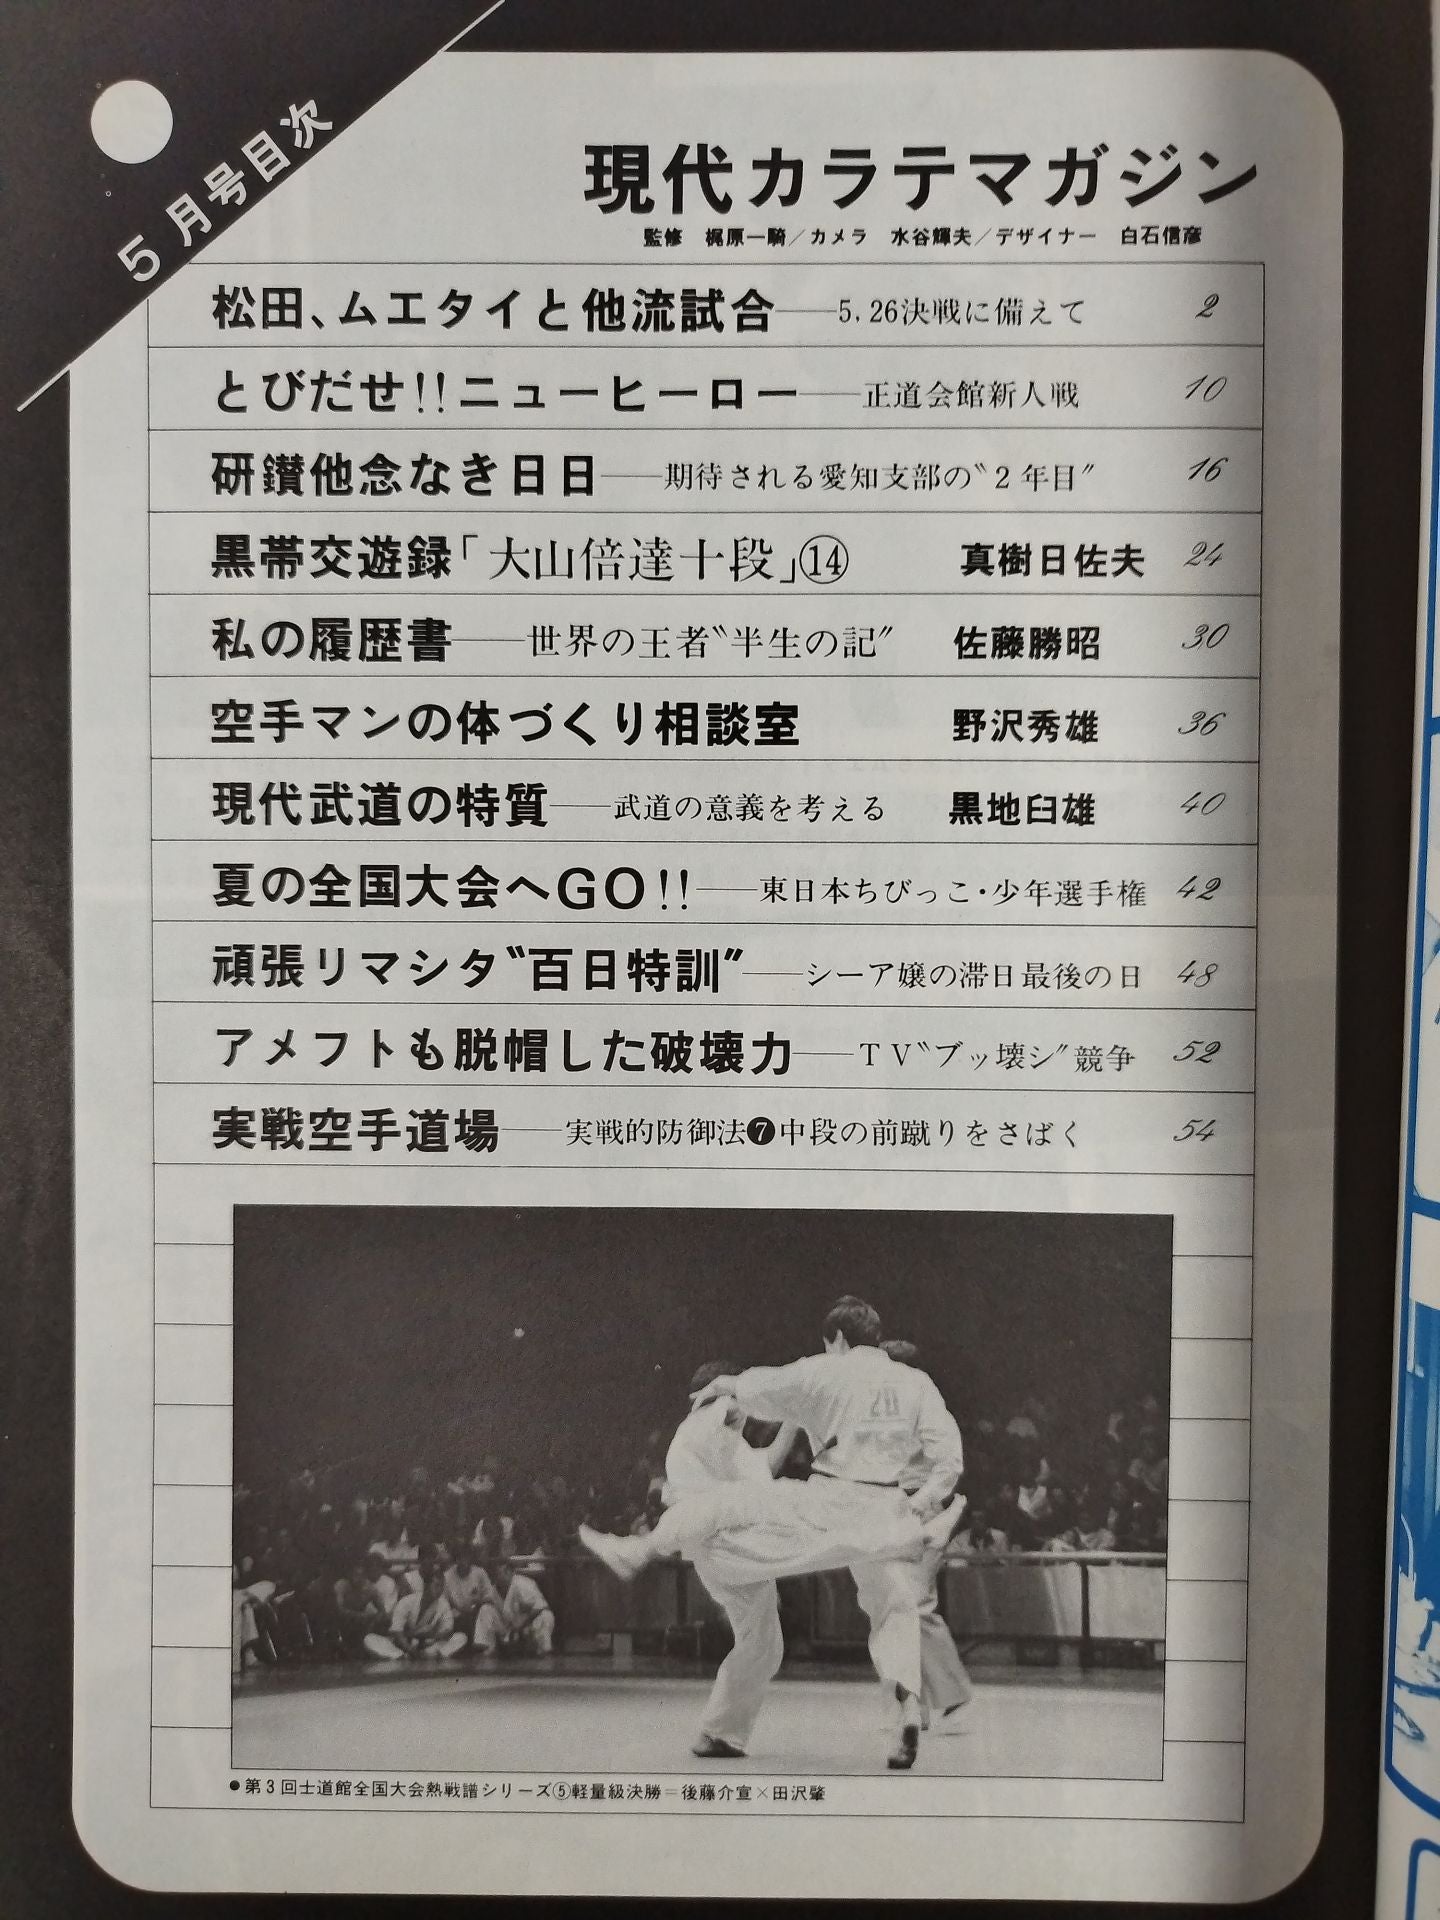 5月号目次
現代カラテマガジン
監修 梶原一騎／カメラ 水谷輝夫／デザイナー 白石信彦
松田、ムエタイと他流試合――5.26決戦に備えて 2
とびだせ!!ニューヒーロー――正道会館新人戦 10
研鑚他念なき日日――期待される愛知支部の〝2年目〞 16
黒帯交遊録「大山倍達十段」⑭ 真樹日佐夫 24
私の履歴書――世界の王者〝半生の記〞 佐藤勝昭 30
空手マンの体づくり相談室 野沢秀雄 36
現代武道の特質――武道の意義を考える 黒地臼雄 40
夏の全国大会へGO!!――東日本ちびっこ・少年選手権 42
頑張リマシタ〝百日特訓〞――シーア嬢の滞日最後の日 48
アメフトも脱帽した破壊力――TV〝ブッ壊シ〞競争 52
実戦空手道場――実戦的防御法❼中段の前蹴りをさばく 54
20
●第3回士道館全国大会熱戦譜シリーズ⑤軽量級決勝＝後藤介宣×田沢肇